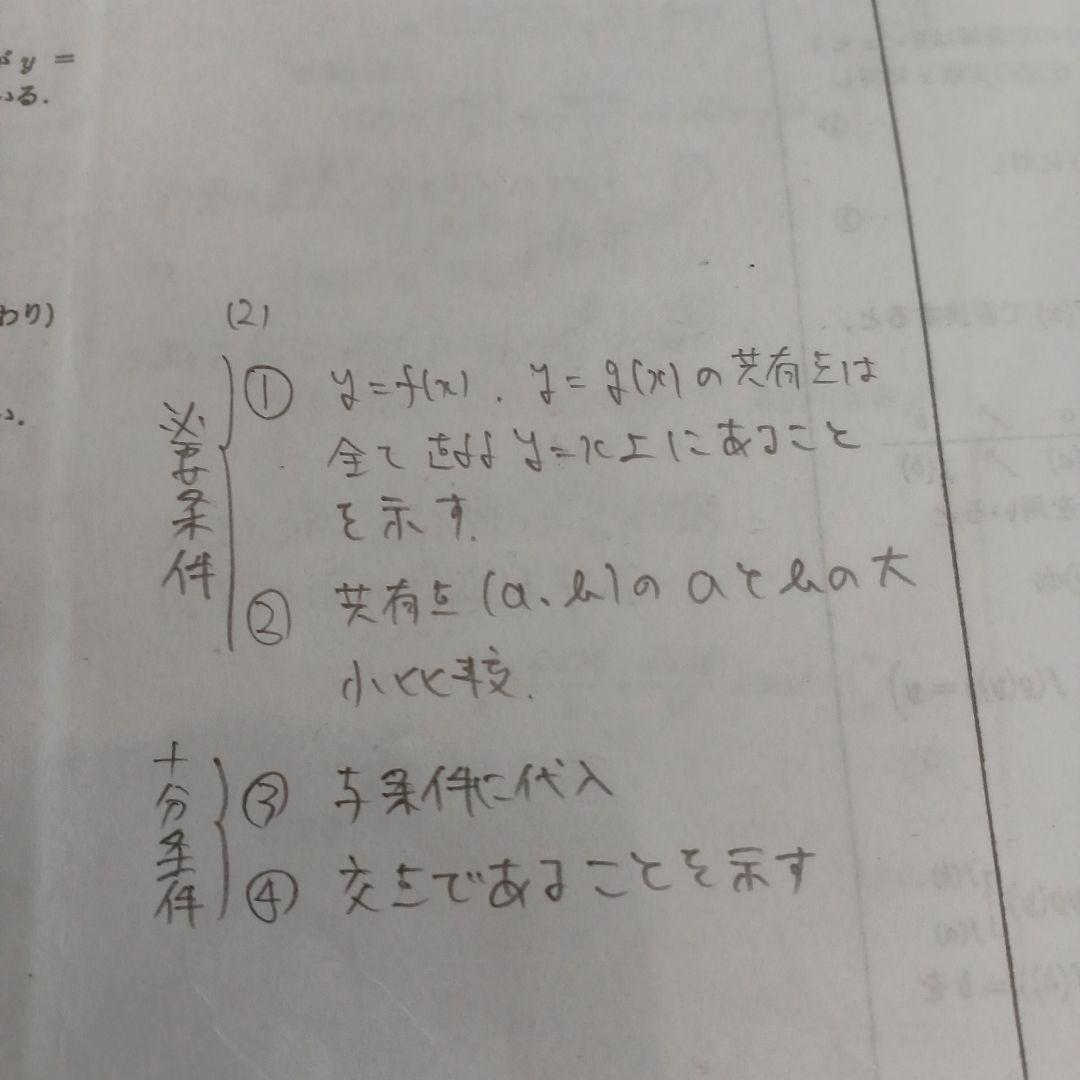 y =
いる.
わり)
(2)
必要条件
① y=f(x), y=g(x)の共有点は
全て直線y=x上にあること
を示す.
② 共有点(a, b)のaとbの大
小比較.
十分条件
③ 与条件に代入
④ 交点であることを示す